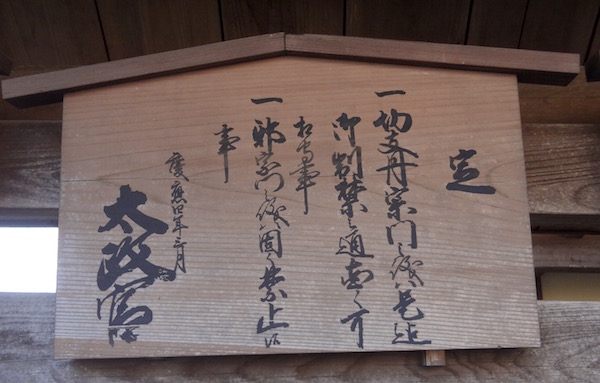 定
一切支丹宗門之儀ハ是迄
御制禁之通固く可
相守事
一邪宗門之儀固く禁止候
事
慶應四年三月
太政官